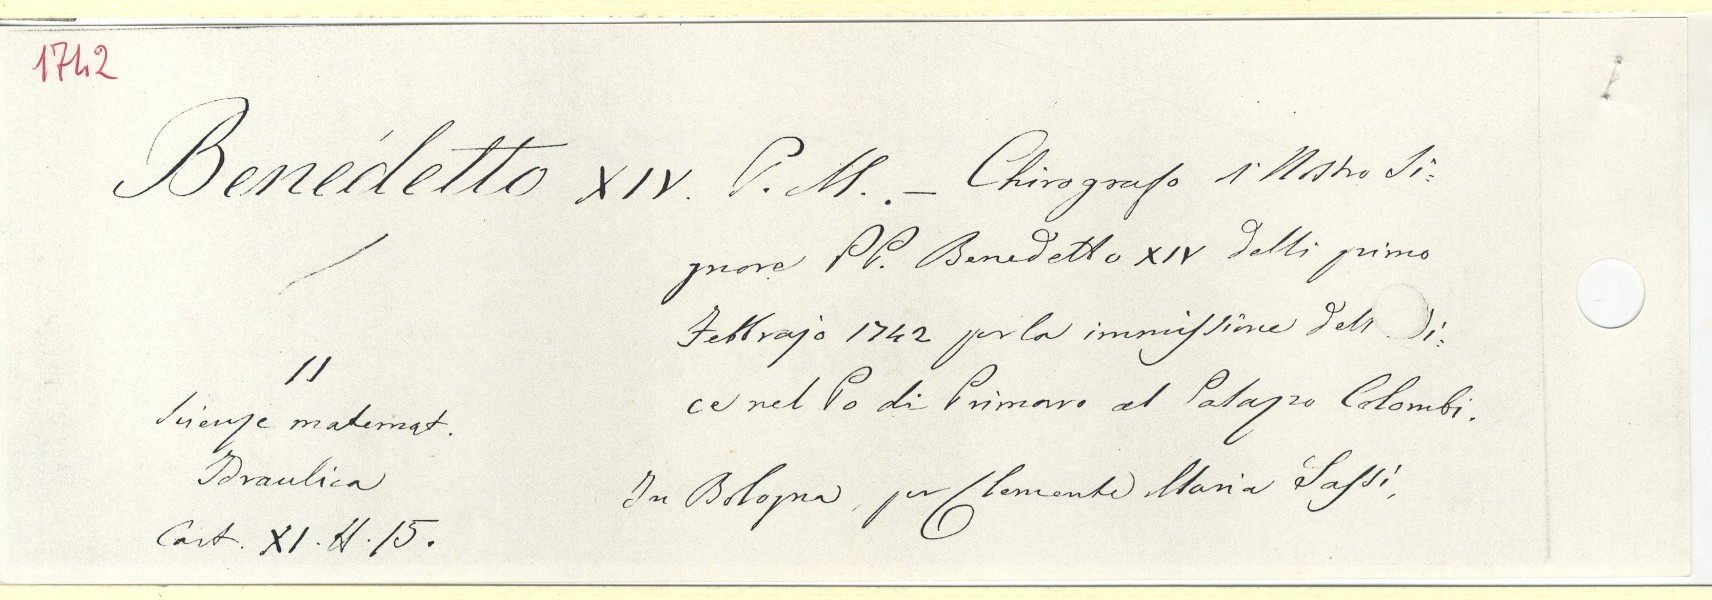 1742
Benedetto XIV. P. M. – Chirografo di Nostro Si=
gnore PP. Benedetto XIV delli primo
Febbrajo 1742 per la immissione dell' Idi=
ce nel Po di Primaro al Palazzo Colombi.
In Bologna, per Clemente Maria Sassi,
11
Scienze matemat.
Idraulica
Cart. XI. H. 15.